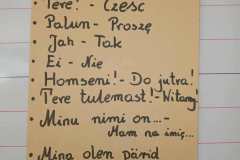 • Tere! - Cześć
• Palun - Proszę
• Jah - Tak
• Ei - Nie
• Homseni! - Do jutra!
• Tere tulemast! - Witamy!
• Minu nimi on...-
Mam na imię...
• Mina olen pärid